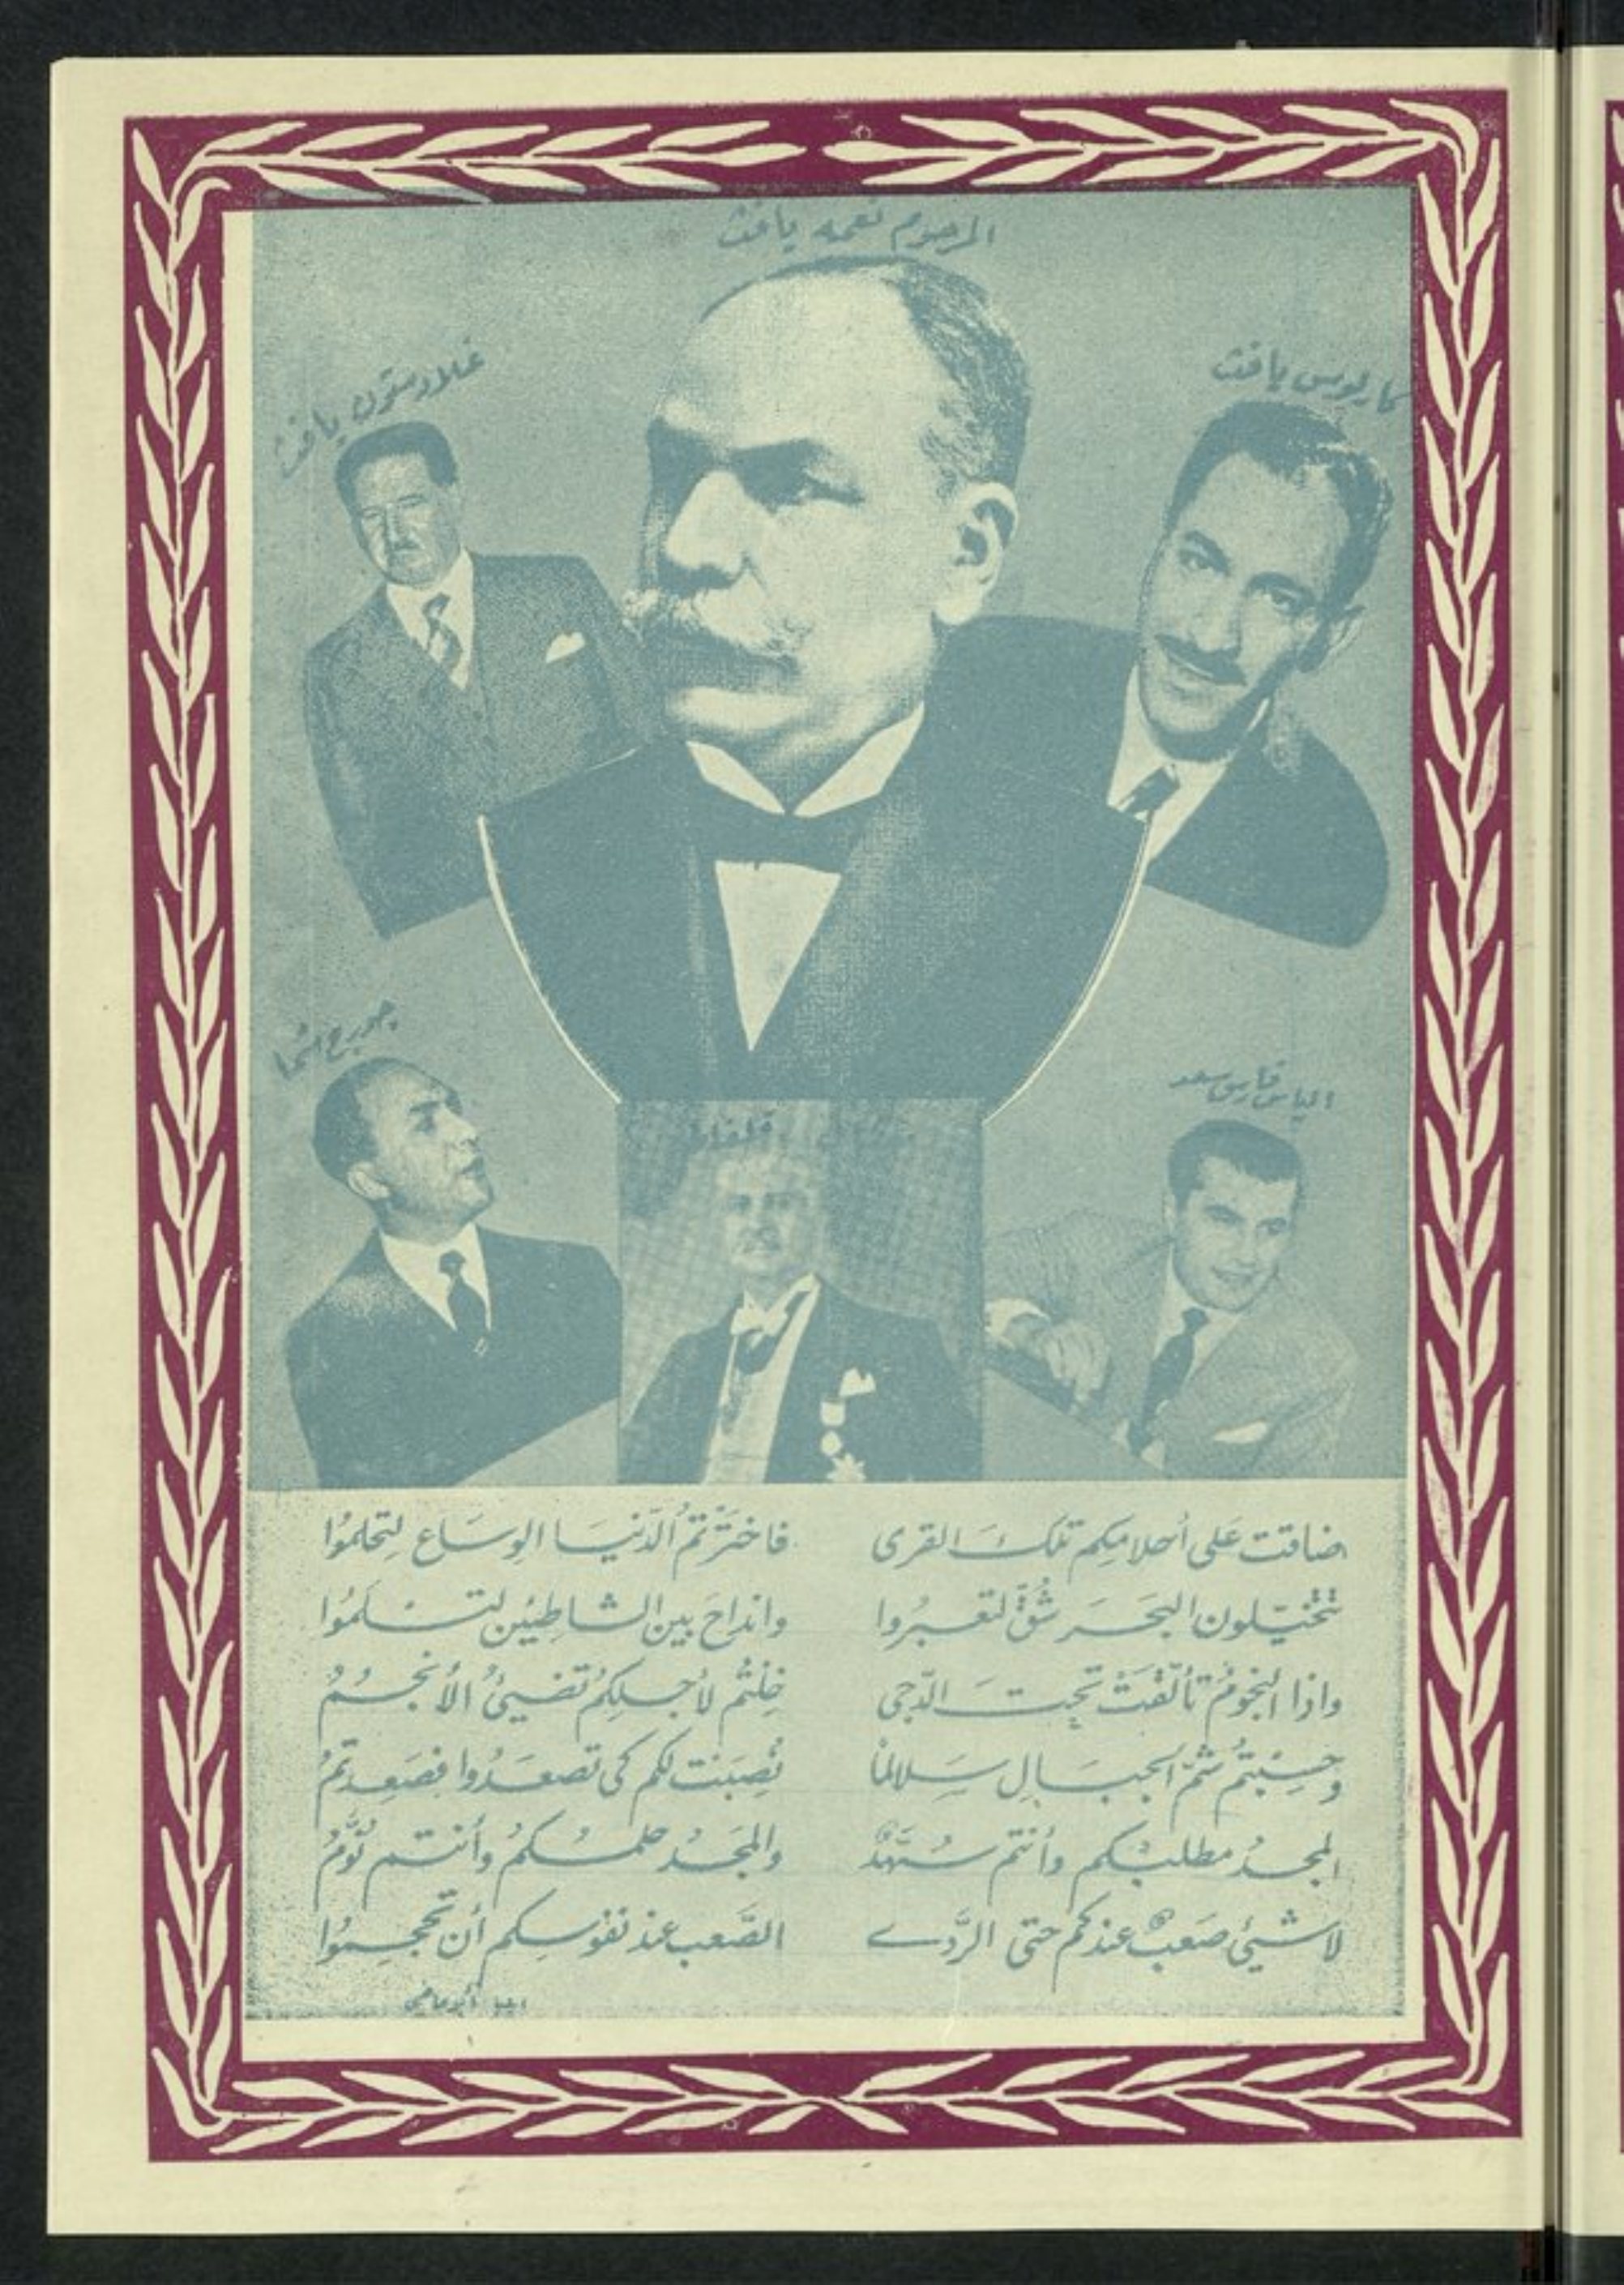 المرحوم نعمه يافث
كارلوس يافث
غلادستون يافث
الياس فارس سعد
جورج اشحا
قلفاط
ضاقت عَلى أحلامِكم تلكَ القرى فاختَرْتمُ الدّنيَا الوِسَاع لِتحلموُا
تتخيّلون البحَرَ شُقَّ لتعبُروا وانداحَ بين الشاطئين لتسلَموُا
واذا النجومُ تألّقتْ تحِتَ الدّجى خِلتُم لأجلِكمُ تضيئُ الأنجمُ
وحسِبْتمُ شمَّ الجبَالِ سَلالماً نُصِبَت لكم كي تصعَدُوا فصَعِدتمُ
المجدُ مطلبُكم وأنتم سُهَّدٌ والمجَدُ حلمُكمُ وأنتم نُوَّمُ
لا شيئ صَعبٌ عندكم حتى الرَّدى الصَّعب عند نفوسكم أن تحجموُا
ايليا أبو ماضي